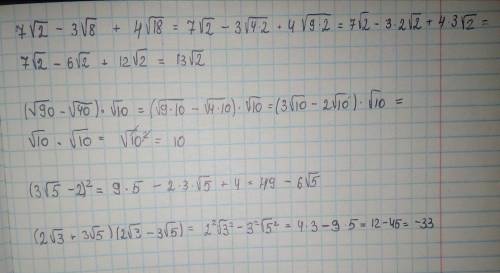 7√2 - 3√8 + 4√18 = 7√2 - 3√4·2 + 4√9·2 = 7√2 - 3·2√2 + 4·3√2 =
7√2 - 6√2 + 12√2 = 13√2
(√90 - √40)·√10 = (√9·10 - √4·10)·√10 = (3√10 - 2√10)·√10 =
√10 · √10 = √10² = 10
(3√5 - 2)² = 9·5 - 2·3·√5 + 4 = 49 - 6√5
(2√3 + 3√5)(2√3 - 3√5) = 2²√3² - 3²√5² = 4·3 - 9·5 = 12 - 45 = -33